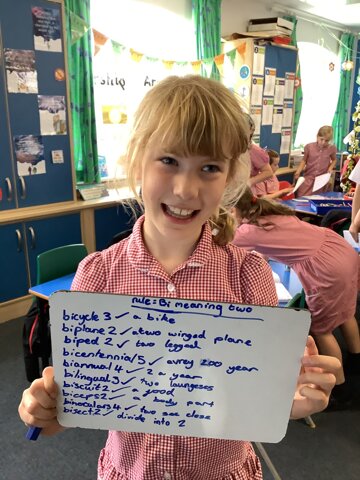 rule=Bi meaning two
bicycle 3 ✓ a bike
biplane 2 ✓ a two winged plane
biped 2 ✓ two legged
bicentennial 5 ✓ avrey 200 year
biannual 4 ✓ 2 a year
bilingual 3 ✓ two laungeses
biscuit 2 ✓ a food
biceps 2 ✓ a body part
binoculars 4 ✓ two see close
bisect 2 ✓ divide into 2